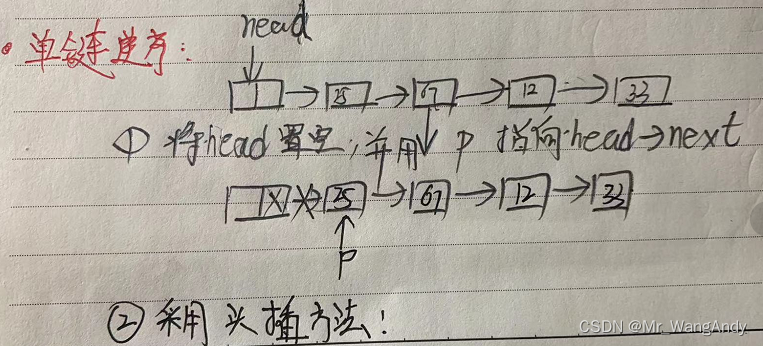 head
单链逆序:
25 67 12 33
① 将head置空,并用 P 指向head→next
25 67 12 33
P
② 采用头插方法:
CSDN @Mr_WangAndy